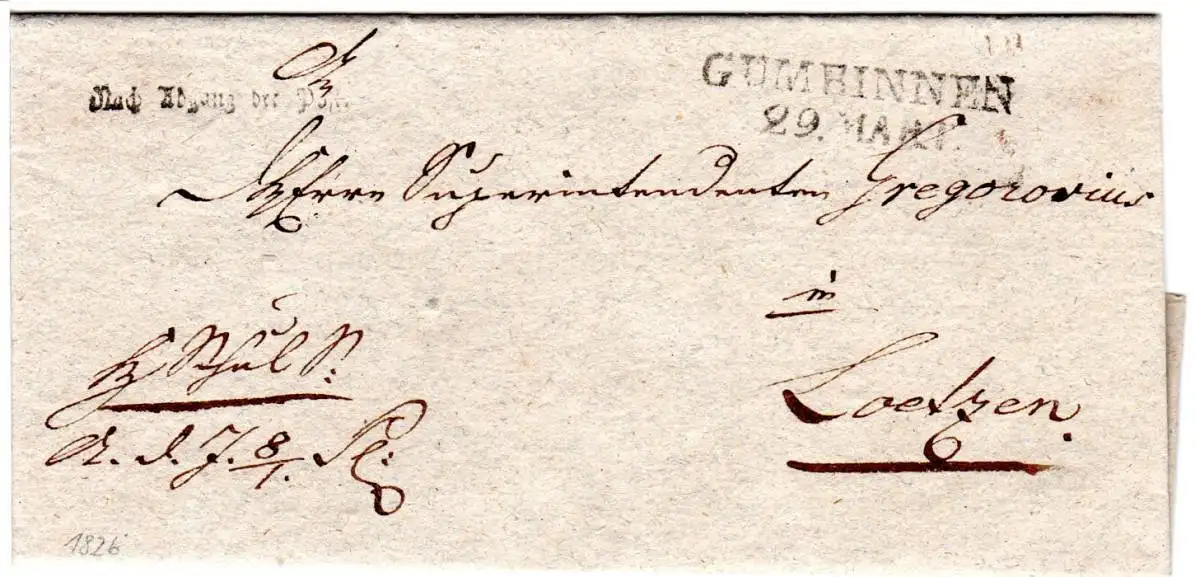 Nach Abgang der Post.
GUMBINNEN
29. MART.
Herrn Superintendenten Gregorovius
in
Loetzen.
Schul S:
A. d. J. 8/1.
1826